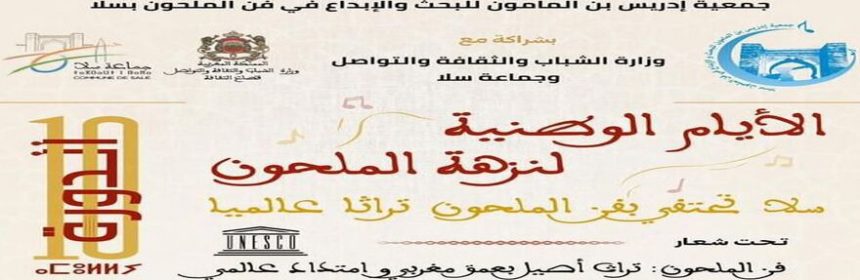 جمعية إدريس بن المامون للبحث والإبداع في فن الملحون بسلا
بشراكة مع
وزارة الشباب والثقافة والتواصل
وجماعة سلا
جماعة سلا
COMMUNE DE SALE
المملكة المغربية
وزارة الشباب والثقافة والتواصل
قطاع الثقافة
الأيام الوطنية
لنزهة الملحون
سلا تحتفي بفن الملحون تراثا عالميا
الدورة
10
UNESCO
تحت شعار
فن الملحون: تراث أصيل بعمق مغربي وامتداد عالمي